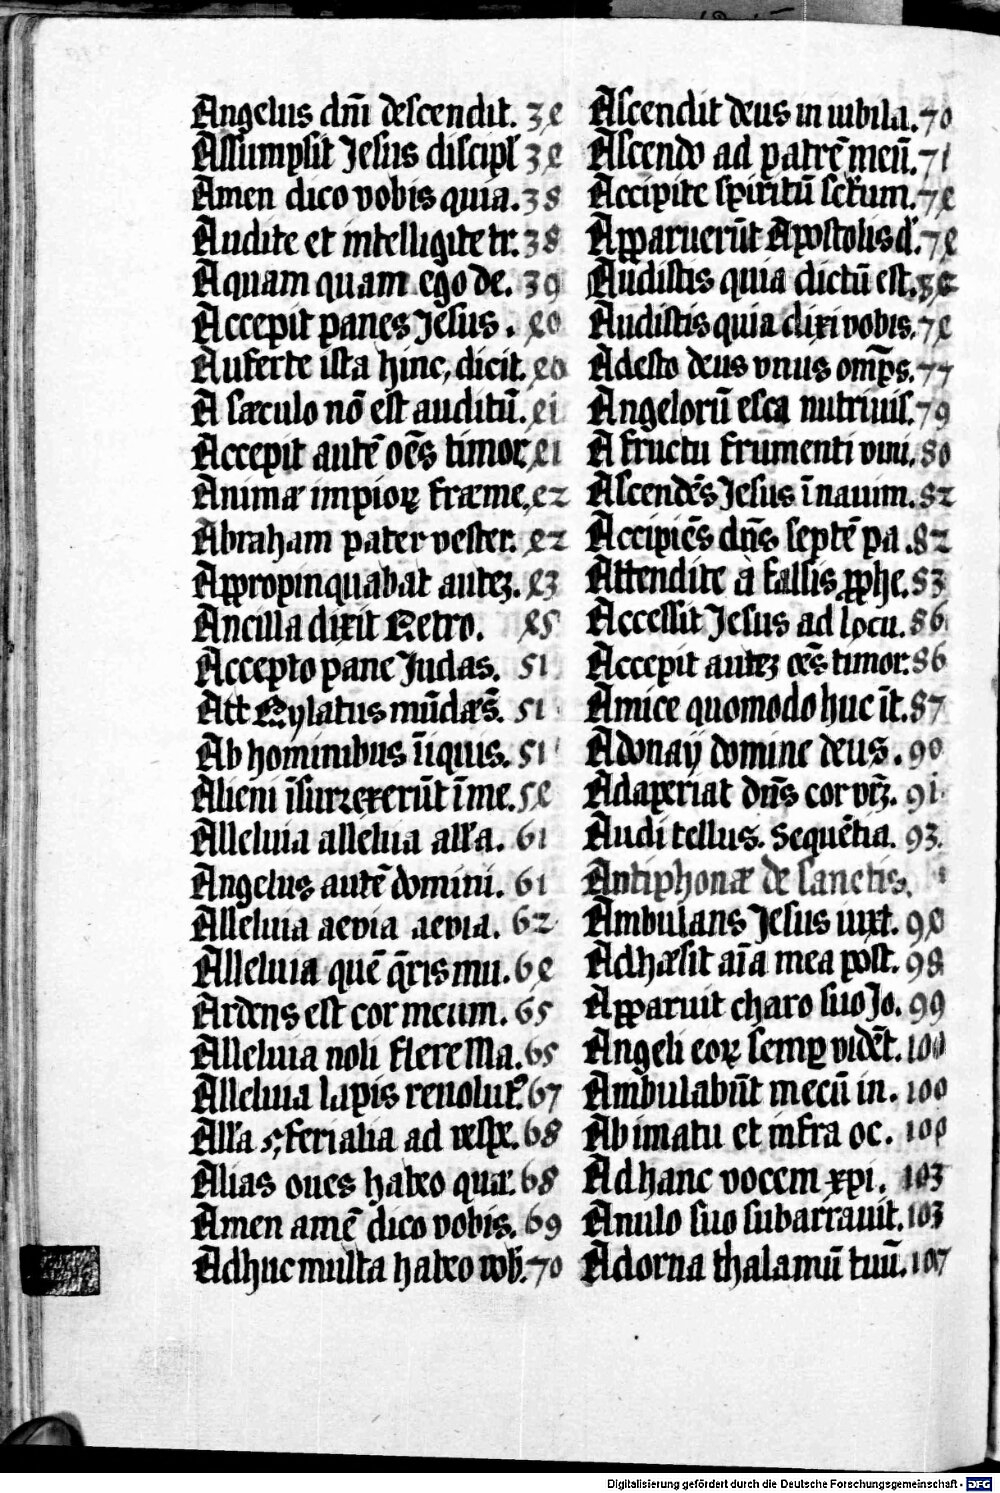 Angelus dn̄i descendit. 34
Assumpsit Jesus discipl 34
Amen dico vobis quia. 38
Audite et intelligite tr. 38
Aquam quam ego de. 39
Accepit panes Jesus. 40
Auferte ista hinc, dicit. 40
A sæculo nō est auditū. 41
Accepit autē oēs timor, 41
Animæ impioꝝ fræme, 42
Abraham pater vester. 42
Appropinquabat auteꝫ. 43
Ancilla dixit Petro. 45
Accepto pane Judas. 51
Att Pylatus mūdæs̄. 51
Ab hominibus īiquis. 51
Alieni īsurrexerūt ī me. 54
Alleluia alleluia all'a. 61
Angelus autē domini. 61
Alleluia aevia aevia. 62
Alleluia quē q̄ris mu. 64
Ardens est cor meum. 65
Alleluia noli flere Ma. 65
Alleluia lapis revolut9. 67
All'a ferialia ad vesꝑ. 68
Alias oves habeo quæ. 68
Amen amē dico vobis. 69
Adhuc multa habeo vob. 70
Ascendit deus in iubila. 70
Ascendo ad patrē meū. 71
Accipite spiritū sctum. 74
Apparuerūt Apostolis d'. 74
Audistis quia dictū est.
Audistis quia dixi vobis. 74
Adesto deus unus omp̄s. 77
Angelorū esca nutrivis. 79
A fructu frumenti vini. 80
Ascendēs Jesus ī navim. 82
Accipiēs dn̄s septē pa. 82
Attendite à falsis ꝓphe. 83
Accessit Jesus ad locu. 86
Accepit auteꝫ oēs timor. 86
Amice quomodo huc īt. 87
Adonay domine deus. 90
Adaperiat dn̄s cor vr̄ꝫ. 91
Audi tellus. Sequētia. 93.
Antiphonæ de sanctis.
Ambulans Jesus iuxt. 94
Adhæsit aīa mea post. 98
Apparuit charo suo Jo. 99
Angeli eoꝝ semꝑ vidēt. 100
Ambulabūt mecū in. 100
Ab imatu et infra oc. 101
Ad hanc vocem xpi. 103
Anulo suo subarravit. 103
Adorna thalamū tuū. 107
Digitalisierung gefördert durch die Deutsche Forschungsgemeinschaft - DFG